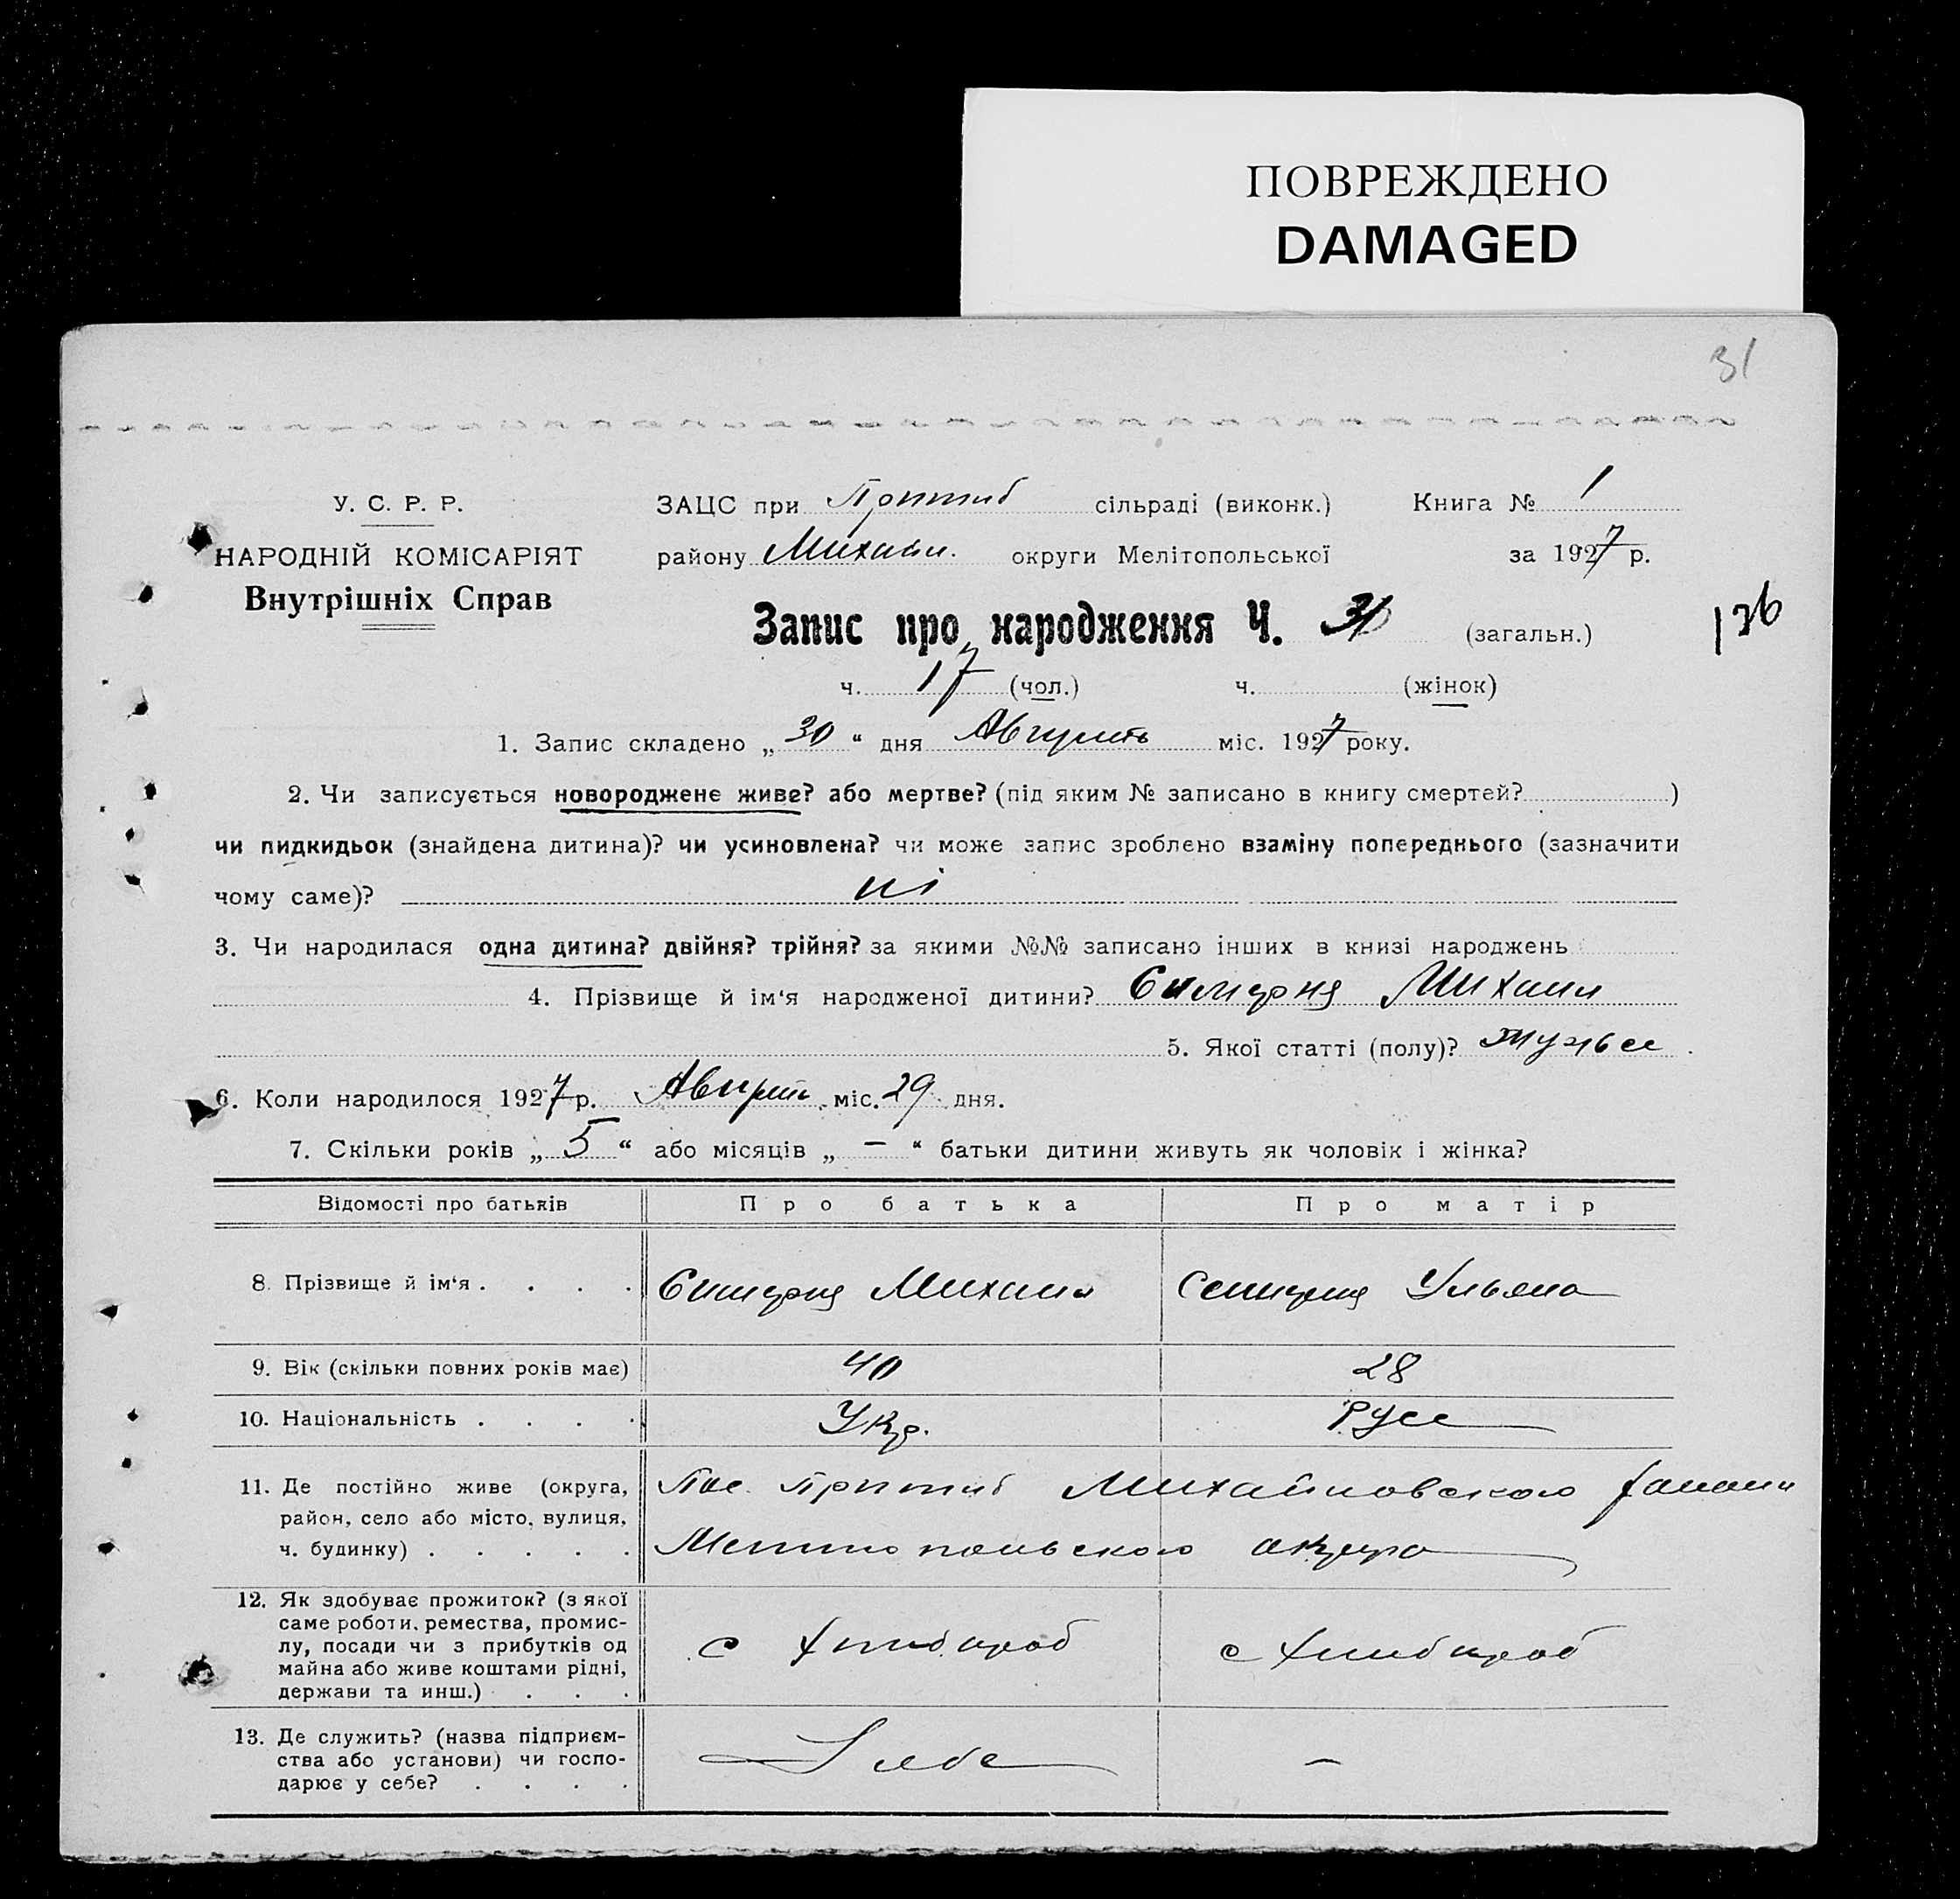 ПОВРЕЖДЕНО
DAMAGED
31
У. С. Р. Р.
НАРОДНІЙ КОМІСАРІЯТ
Внутрішніх Справ
ЗАЦС при сільраді (виконк.) Книга № 1
району Михайл. округи Мелітопольської за 1927 р.
Запис про народження Ч. 31 (загальн.)
136
ч. 17 (чол.) ч. (жінок)
1. Запис складено „ 30 “ дня Августь міс. 1927 року.
2. Чи записується новороджене живе? або мертве? (під яким № записано в книгу смертей? )
чи пидкидьок (знайдена дитина)? чи усиновлена? чи може запис зроблено взаміну попереднього (зазначити
чому саме)? ні
3. Чи народилася одна дитина? двійня? трійня? за якими №№ записано інших в книзі народжень
4. Прізвище й ім‘я народженої дитини? Михаил
5. Якої статті (полу)?
6. Коли народилося 1927 р. Август міс. 29 дня.
7. Скільки років „ 5 “ або місяців „ – “ батьки дитини живуть як чоловік і жінка?
Відомості про батьків Про батька Про матір
8. Прізвище й ім‘я . . . . Михаил Ульяна
9. Вік (скільки повних років має) 40 28
10. Національність . . . . Укр. Русс
11. Де постійно живе (округа,
район, село або місто, вулиця,
ч. будинку) . . . . .
Пос. Михайловского района
Мелитопольского округа
12. Як здобуває прожиток? (з якої
саме роботи, ремества, промис-
лу, посади чи з прибутків од
майна або живе коштами рідні,
держави та инш.) . . .
с хлебороб с хлебороб
13. Де служить? (назва підприєм-
ства або установи) чи госпо-
дарює у себе? . . . .
У себе –